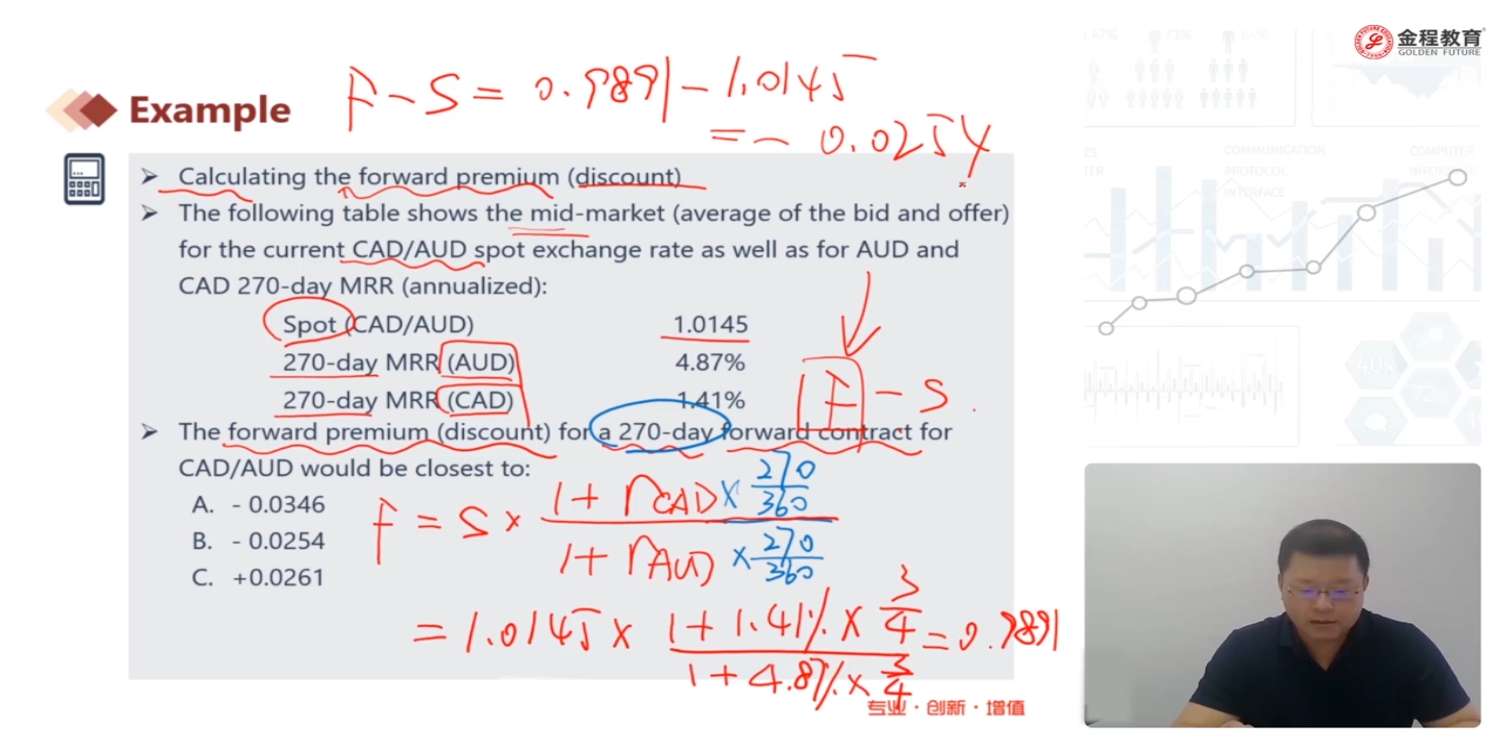 金程教育
GOLDEN FUTURE
F - S = 0.9891 - 1.0145
= - 0.0254
Example
Calculating the forward premium (discount)
The following table shows the mid-market (average of the bid and offer)
for the current CAD/AUD spot exchange rate as well as for AUD and
CAD 270-day MRR (annualized):
Spot (CAD/AUD) 1.0145
270-day MRR (AUD) 4.87%
270-day MRR (CAD) 1.41%
F - S
The forward premium (discount) for a 270-day forward contract for
CAD/AUD would be closest to:
A. - 0.0346
B. - 0.0254
C. +0.0261
F = S × (1 + rCAD × 270/360) / (1 + rAUD × 270/360)
= 1.0145 × (1 + 1.41% × 3/4) / (1 + 4.87% × 3/4) = 0.9891
专业·创新·增值
COMMUNICATION
PROTOCOL
INTERFACE